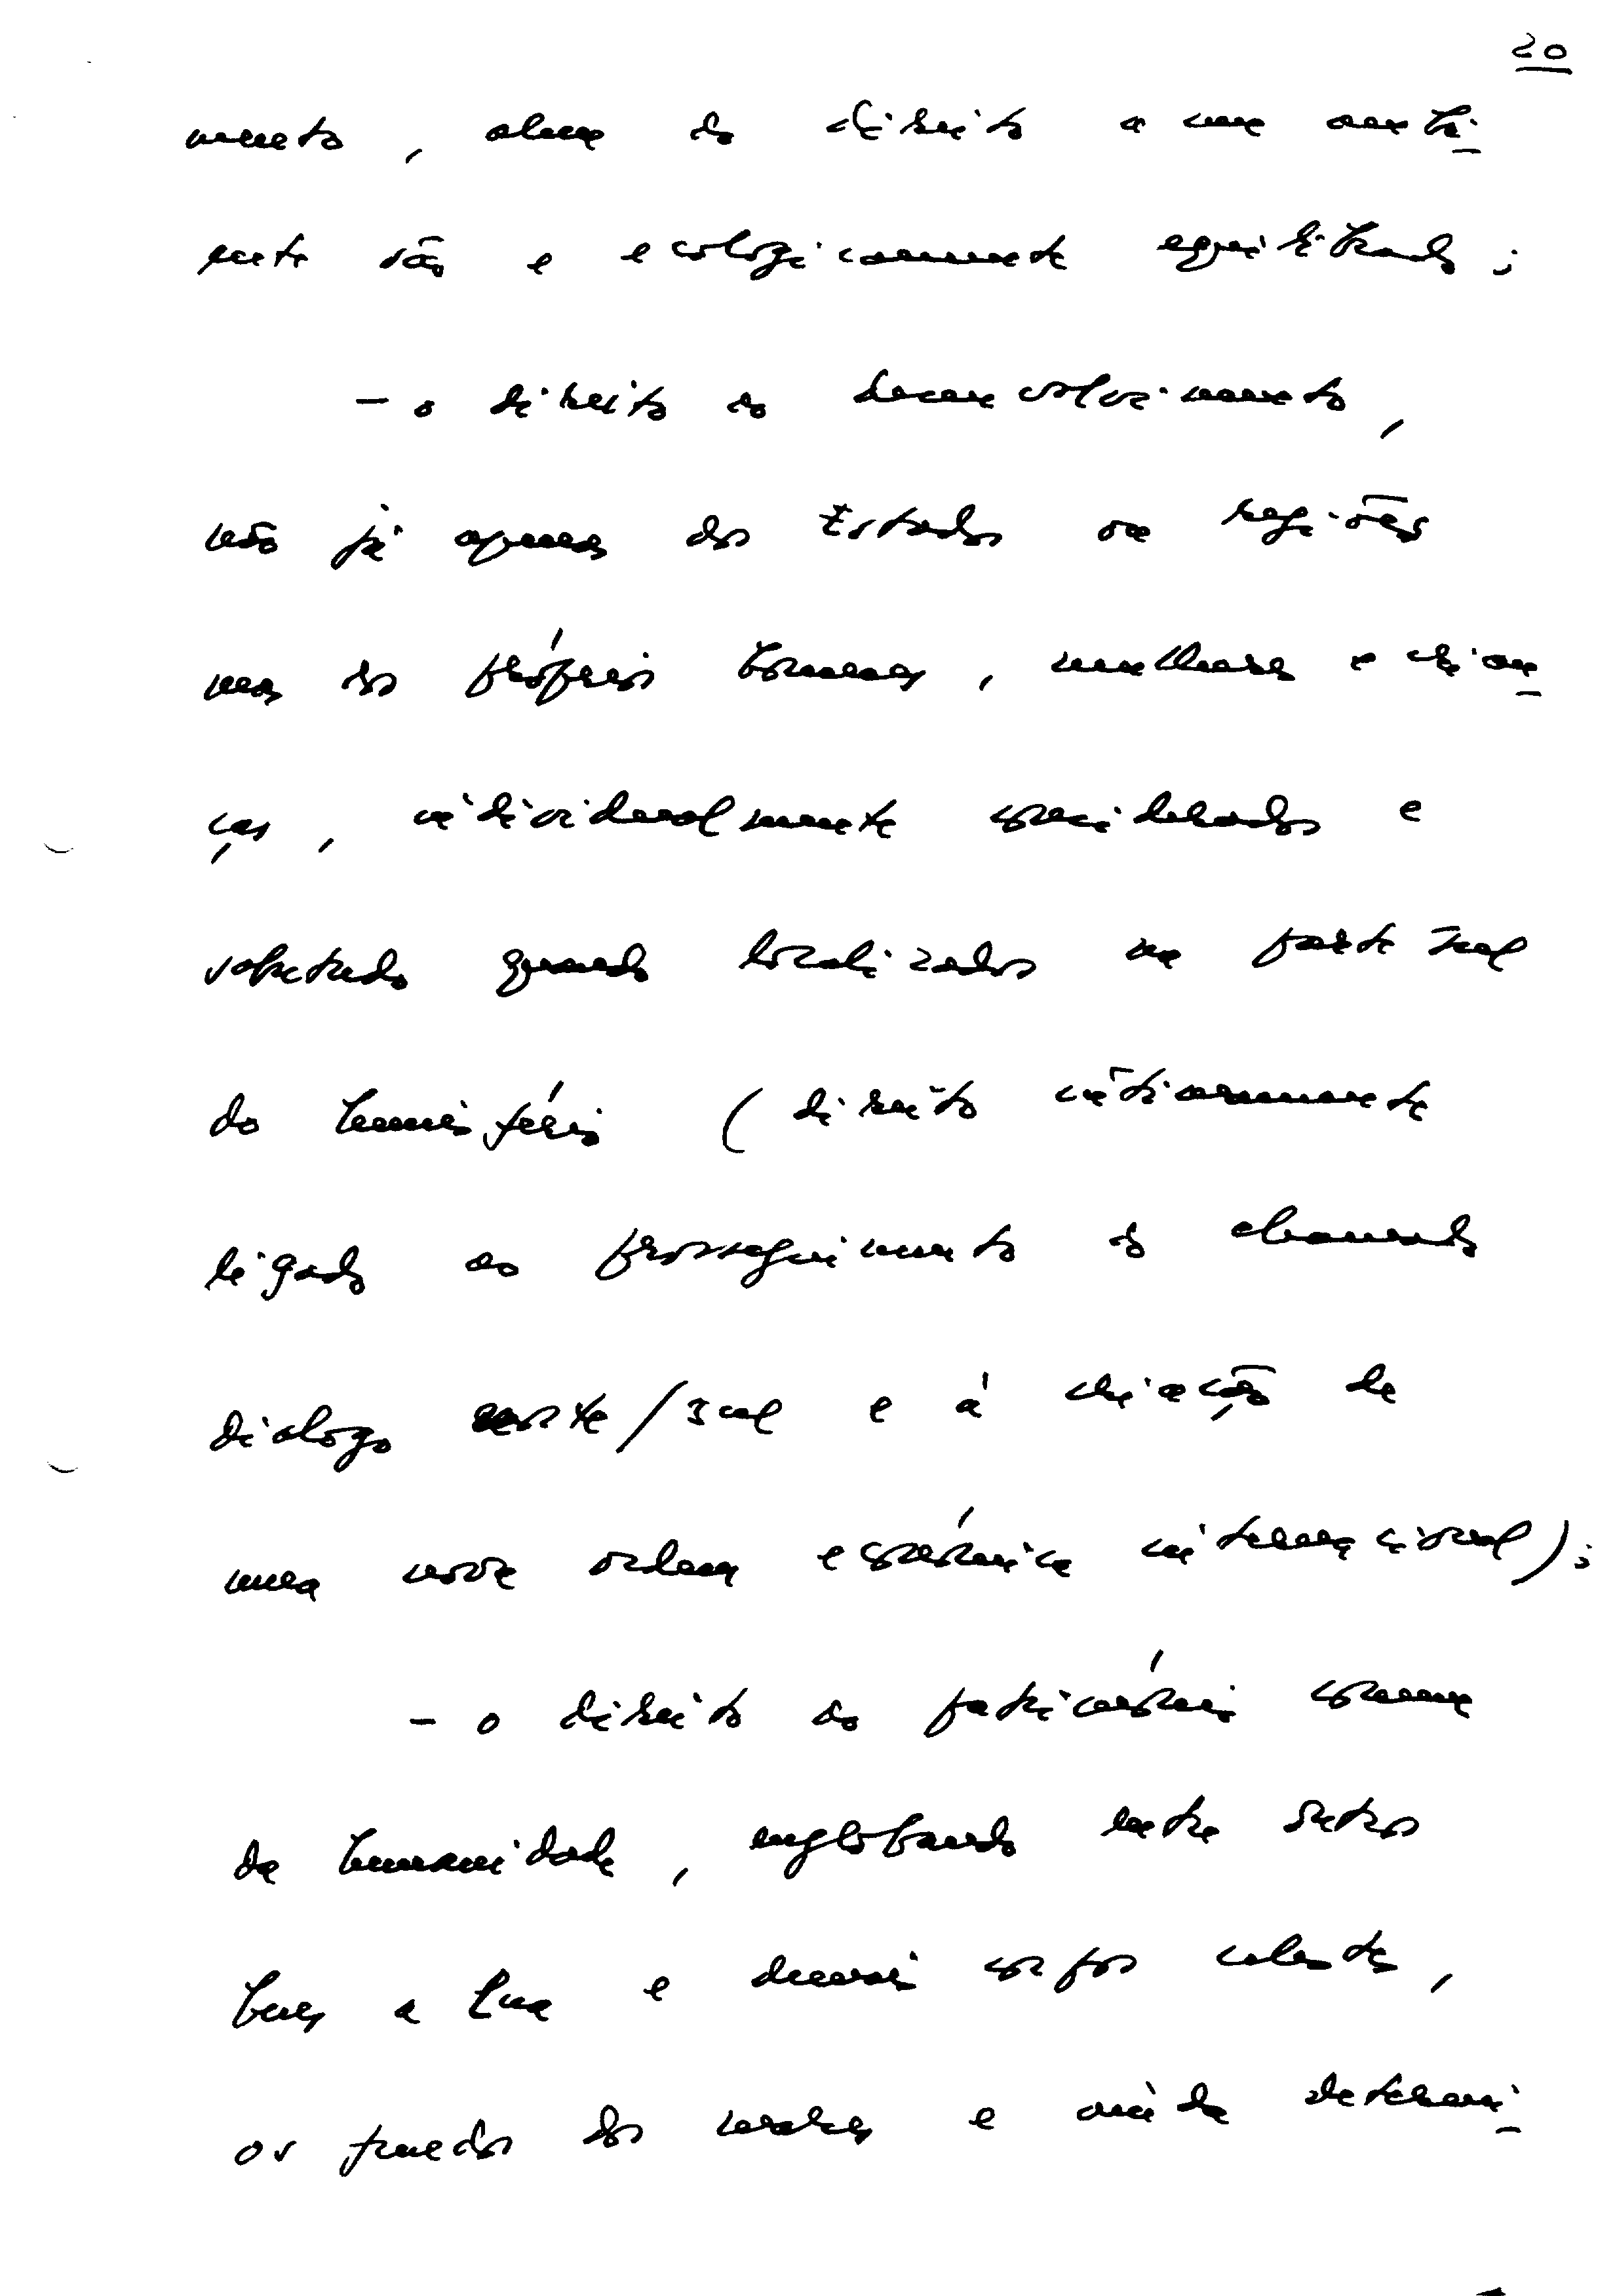 20
mento, além do direito a um ambi-
ente são e ecologicamente equilibrado;
- o direito ao desenvolvimento,
não já apenas dos Estados ou regiões
mas dos próprios homens, mulheres e crian-
ças, individualmente considerados e
sobretudo quando localizados na parte sul
do hemisfério (direito intimamente
ligado ao prosseguimento do chamado
diálogo norte/sul e à criação de
uma nova ordem económica internacional);
- o direito ao património comum
da humanidade, englobando entre outros
bens a lua e demais corpos celestes,
os fundos dos mares e ainda determi-